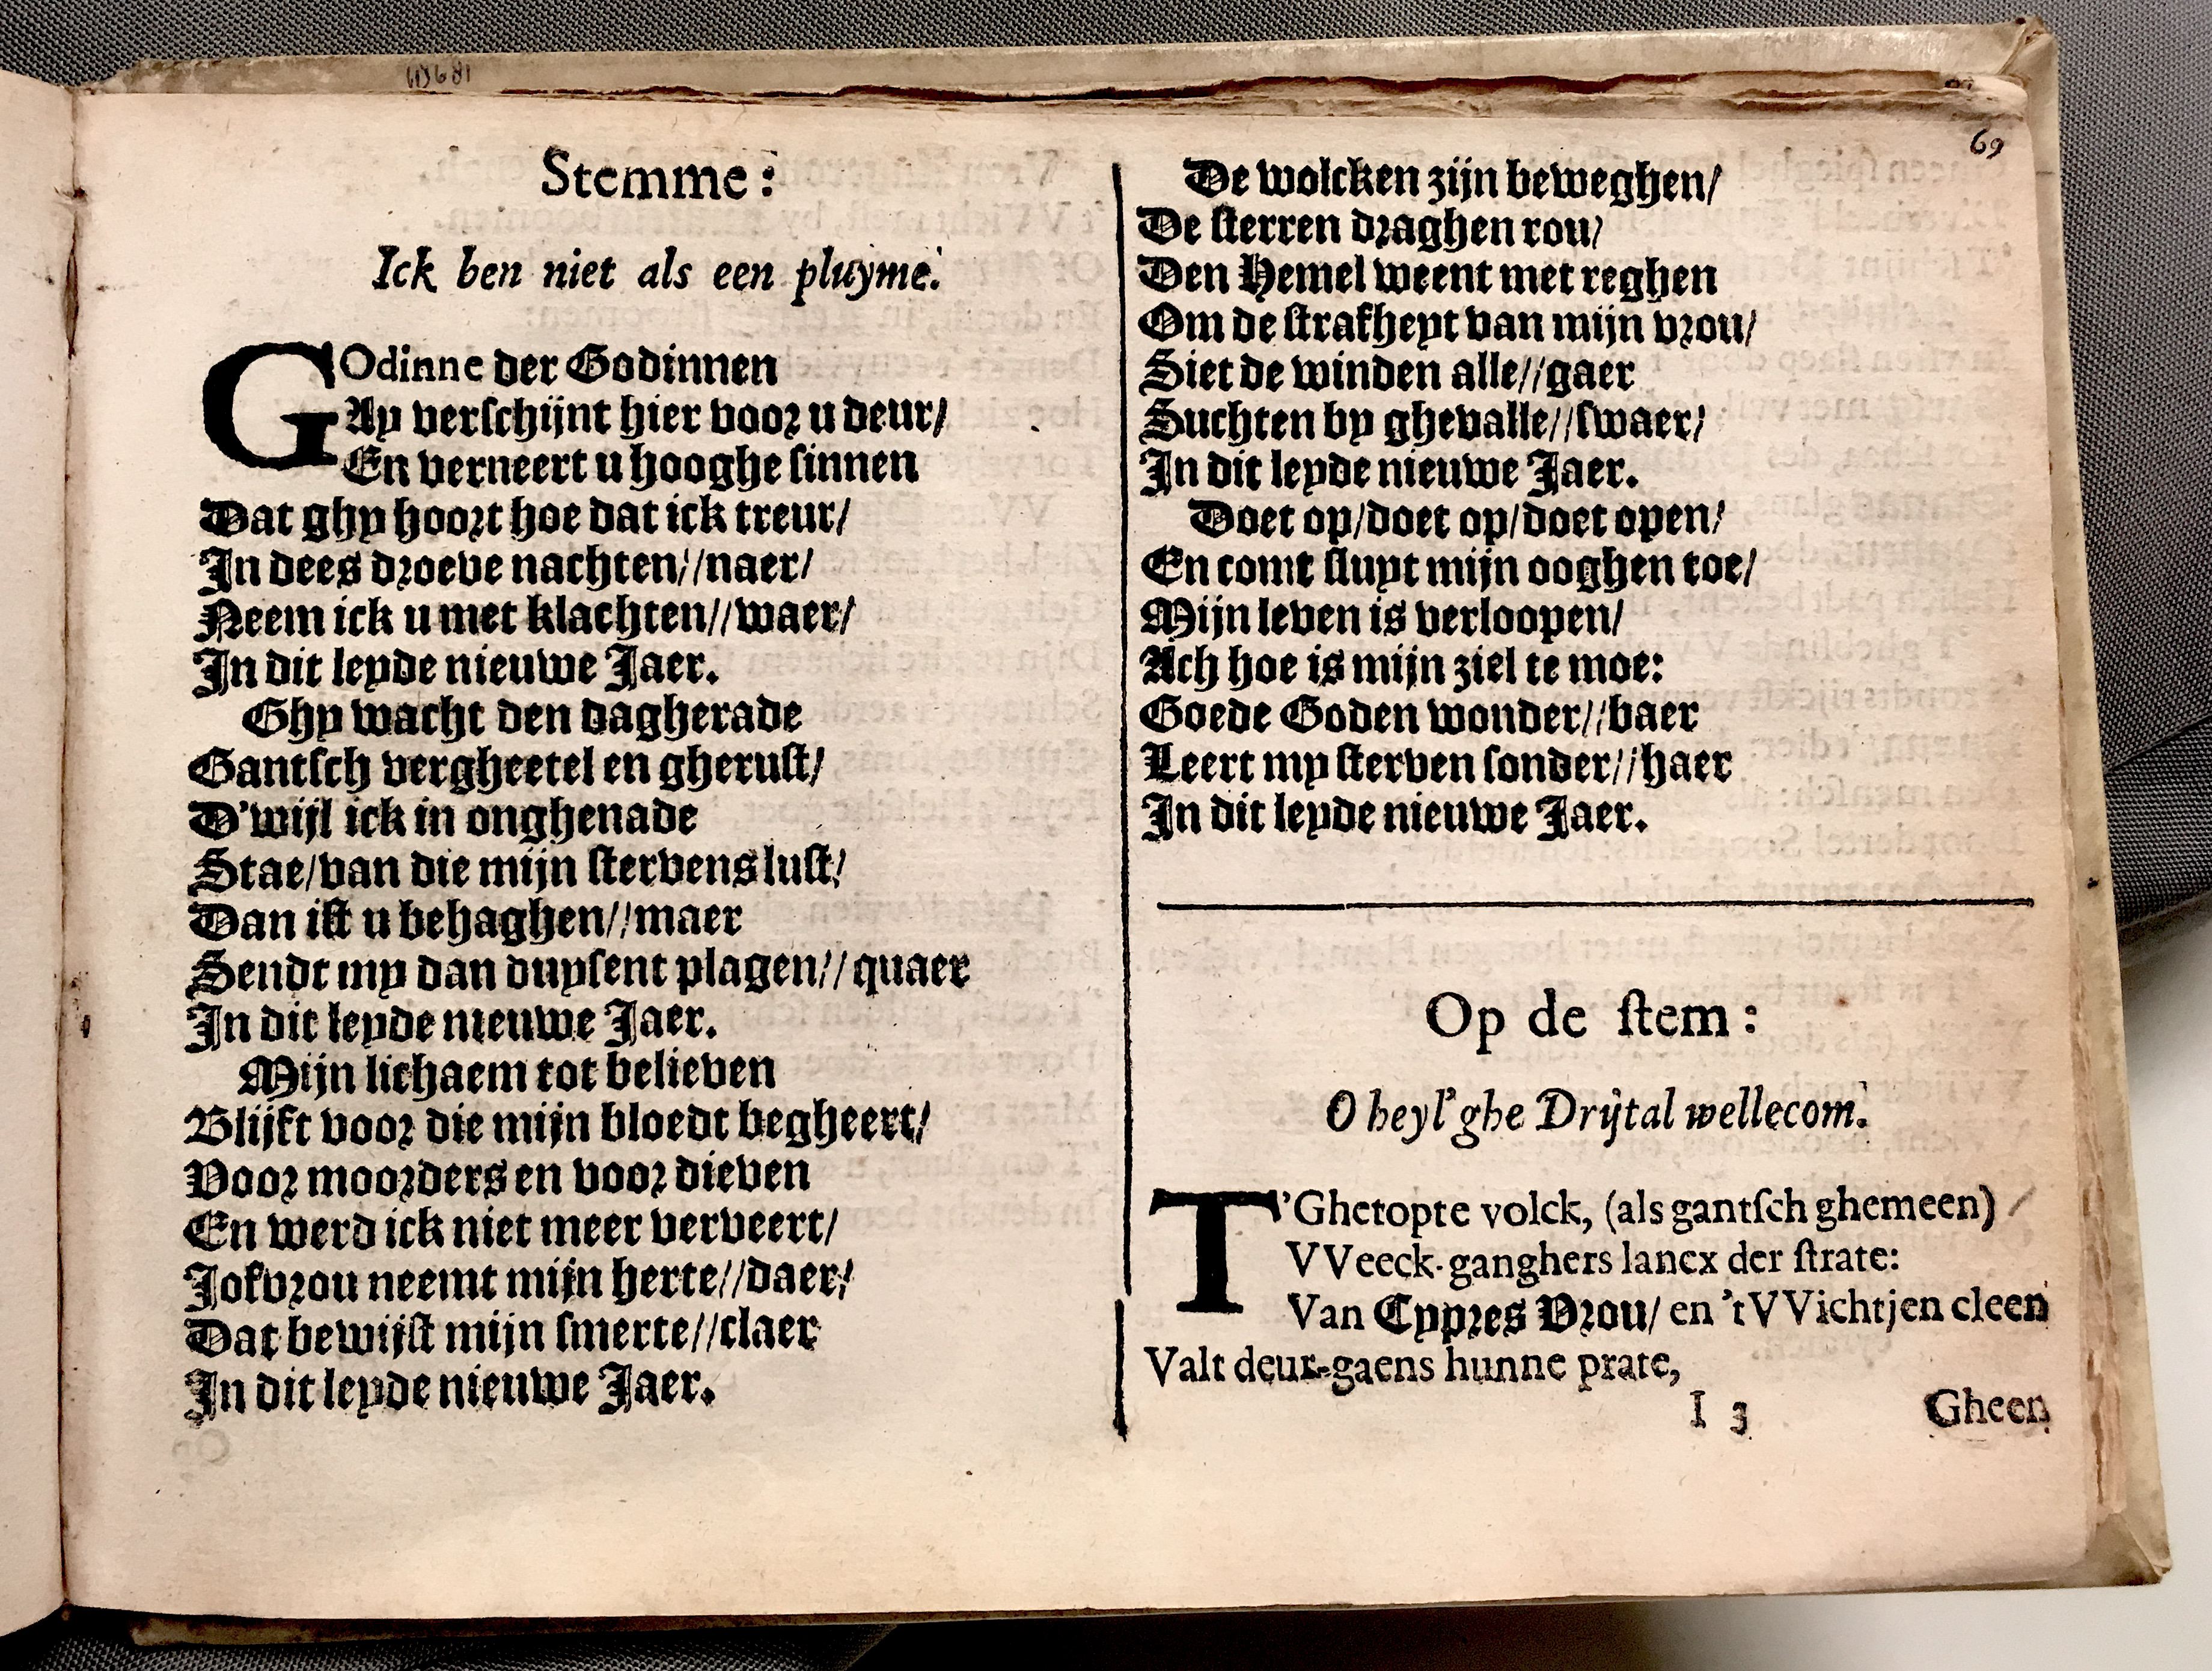 69
Stemme:
Ick ben niet als een pluyme.
GOdinne der Godinnen
Ay verschijnt hier voor u deur/
En verneert u hooghe sinnen
Dat ghy hoort hoe dat ick treur/
In dees droeve nachten//naer/
Neem ick u met klachten//waer/
In dit leyde nieuwe Jaer.
Ghy wacht den dagherade
Gantsch vergheetel en gherust/
D'wijl ick in onghenade
Stae/van die mijn stervens lust/
Dan ist u behaghen//maer
Sendt my dan duysent plagen//quaer
In dit leyde nieuwe Jaer.
Mijn lichaem tot believen
Blijft voor die mijn bloedt begheert/
Voor moorders en voor dieven
En werd ick niet meer verveert/
Jofvrou neemt mijn herte//daer/
Dat bewijst mijn smerte//claer
In dit leyde nieuwe Jaer.
De wolcken zijn beweghen/
De sterren draghen rou/
Den Hemel weent met reghen
Om de strafheyt van mijn vrou/
Siet de winden alle//gaer
Suchten by ghevalle//swaer/
In dit leyde nieuwe Jaer.
Doet op/doet op/doet open/
En comt sluyt mijn ooghen toe/
Mijn leven is verloopen/
Ach hoe is mijn ziel te moe:
Goede Goden wonder//baer
Leert my sterven sonder//haer
In dit leyde nieuwe Jaer.
Op de stem:
O heyl'ghe Drijtal wellecom.
T'Ghetopte volck, (als gantsch ghemeen)
VVeeck-ganghers lancx der strate:
Van Cypres Vrou/ en 'tVVichtjen cleen
Valt deur-gaens hunne prate,
I 3 Gheen